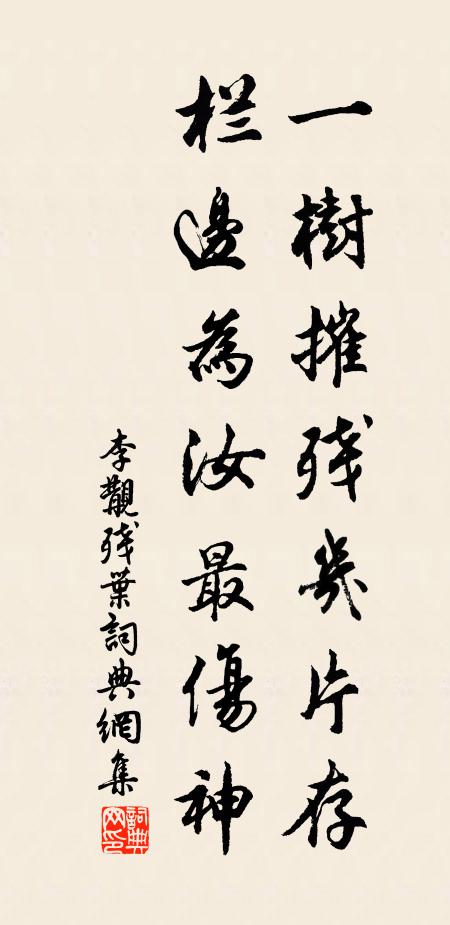 一樹摧残幾片存
栏邊為汝最傷神
李覯残葉詞典網集
詞典网印